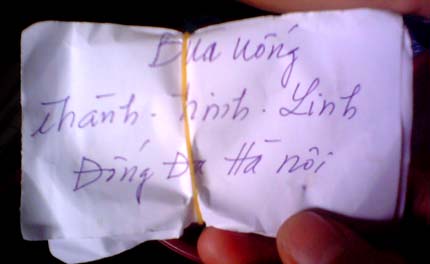 Bùa uống
Thành. Ninh. Linh
Đống Đa Hà nôi